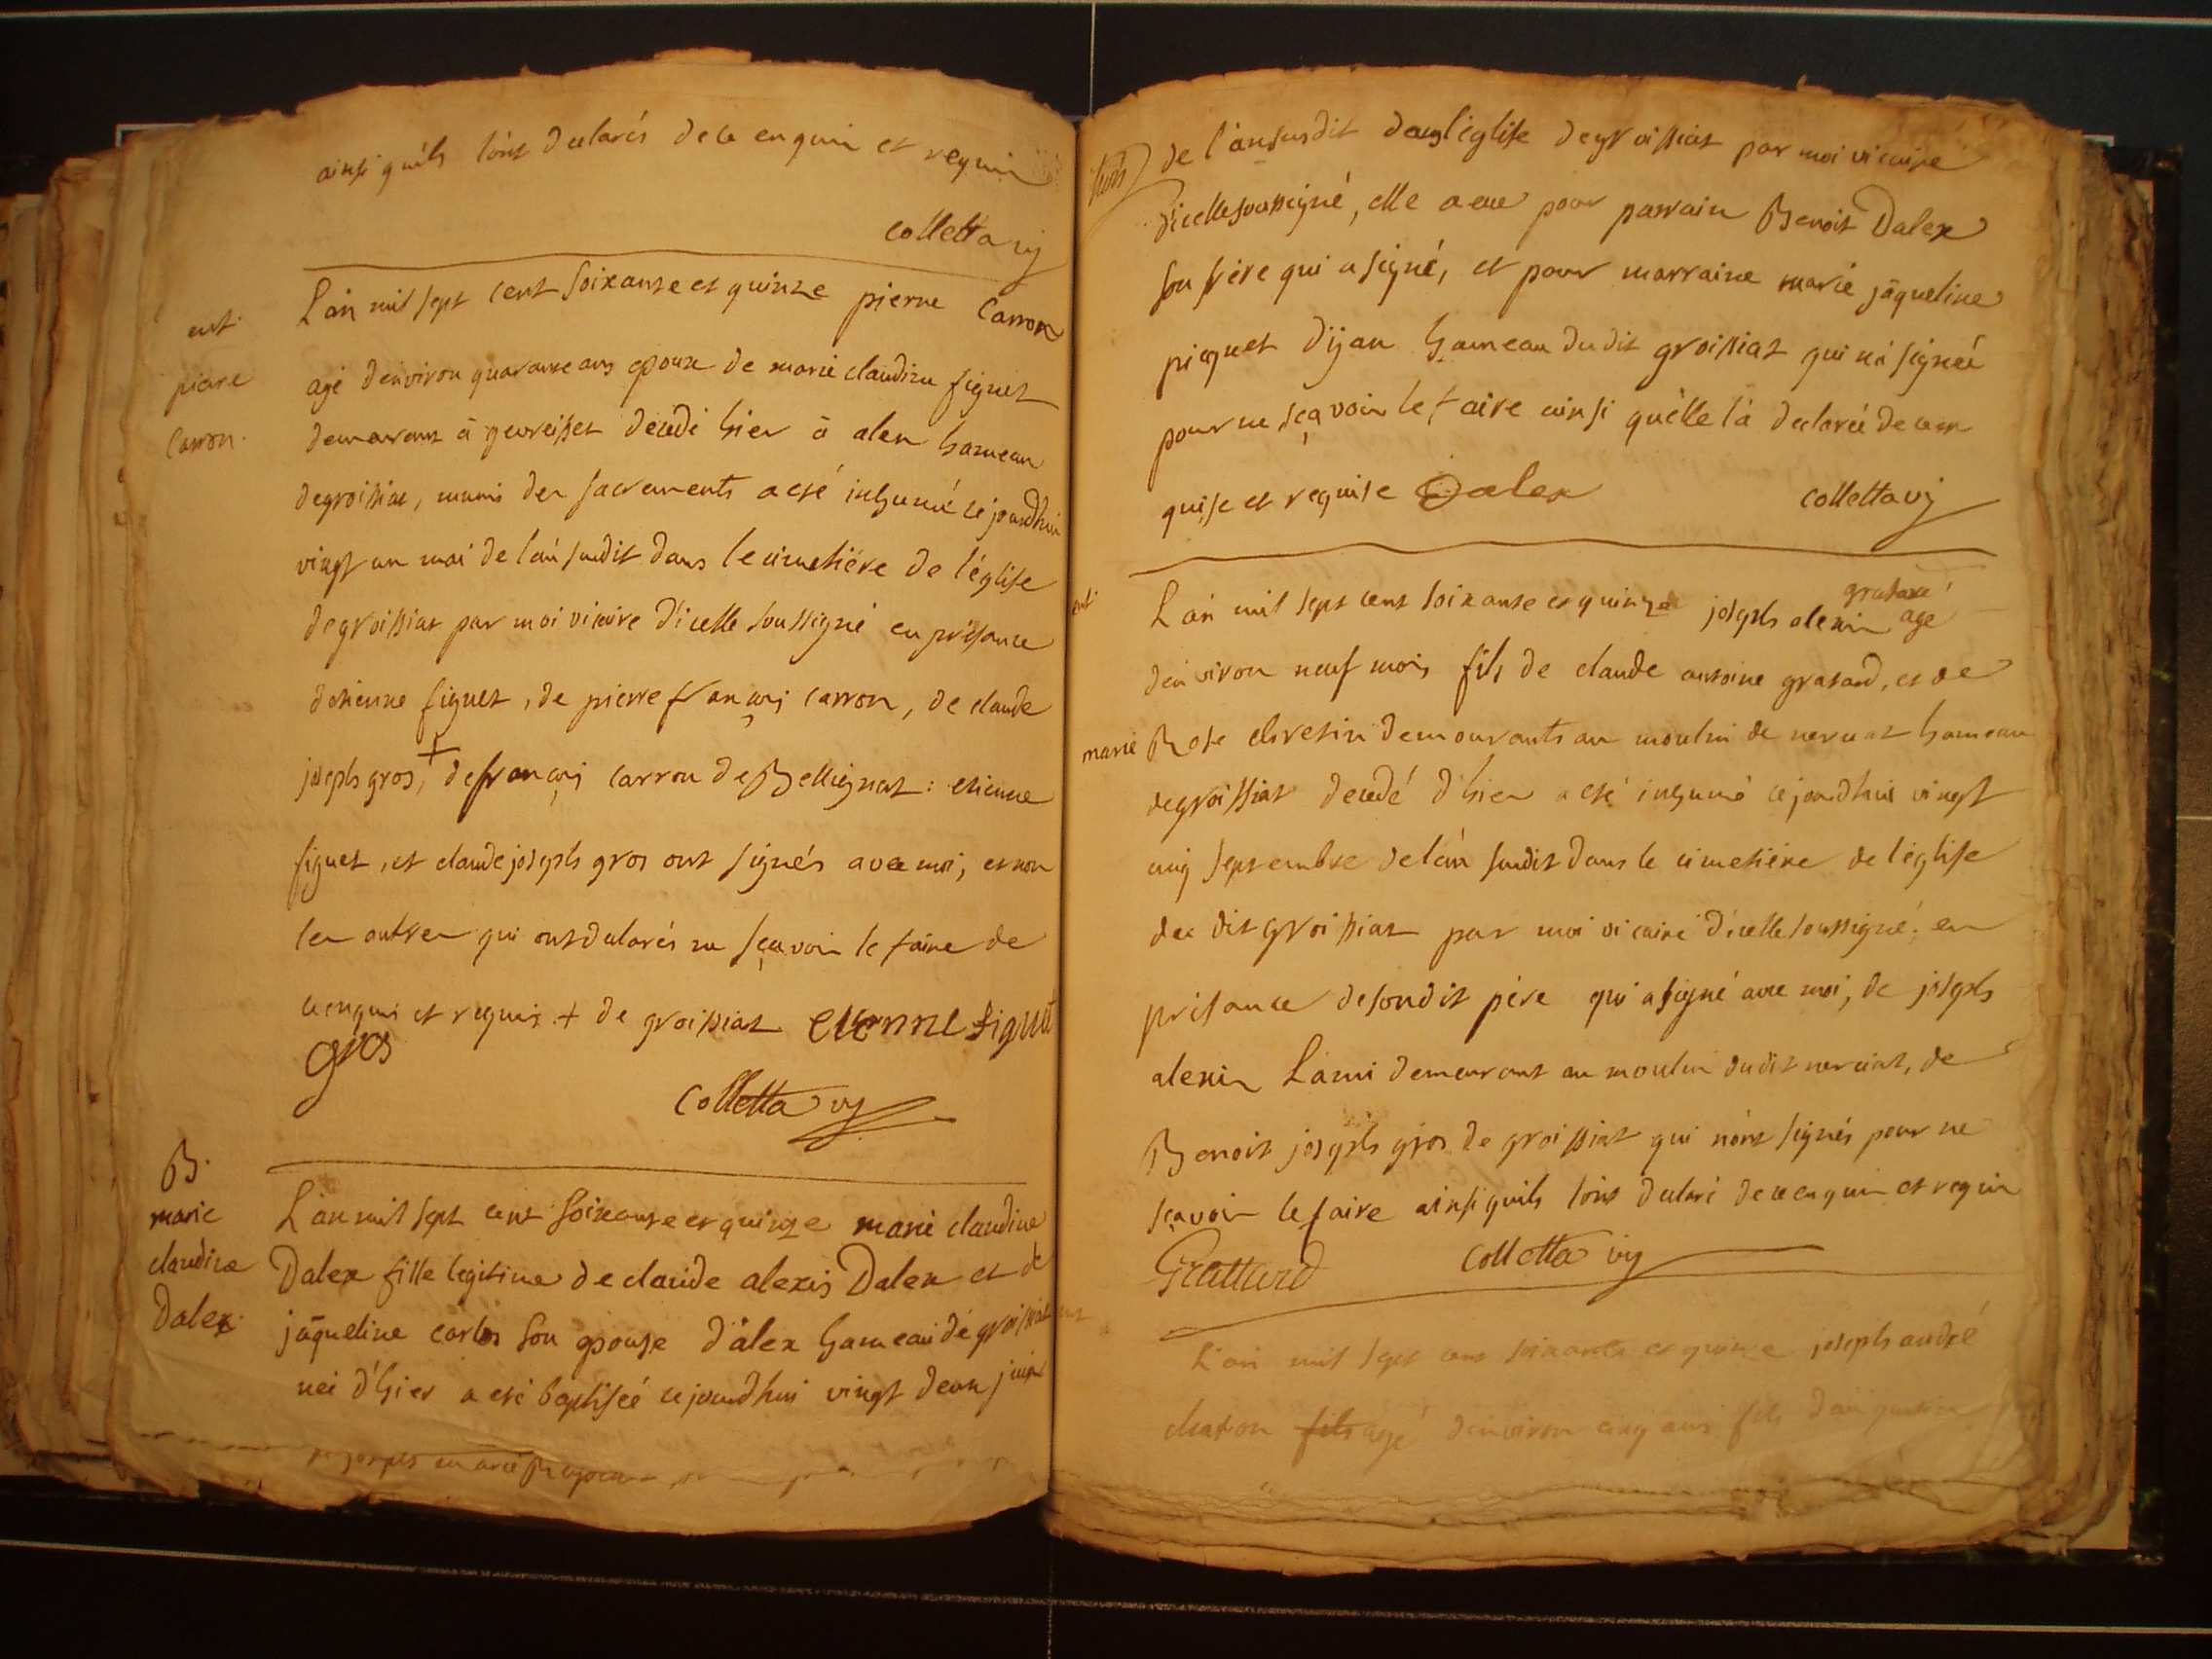 ainsi qu'ils l'ont declarés de ce enquis et requis
colletta vi
L'an mil sept cent soixante et quinze pierre Carron
ent.
piere
Carron.
agé d'environ quarante ans epoux de marie claudine figuet
demeurant à geovreisset decedé hier à alex hameau
de groissiat, munis des sacrements a eté inhumé ce jourdhui
vingt un mai de l'an susdit dans le cimetiére de l'église
de groissiat par moi vicaire d'icelle soussigné en présance
d'etienne figuet, de pierre françois carron, de claude
joseph gros, + de françois carron de Bellignat : etienne
figuet, et claude joseph gros ont signés avec moi, et non
les autres qui ont declarés ne sçavoir le faire de
ce enquis et requis + de groissiat etienne figuet
gros
Colletta vi
B.
marie
claudine
Dalex.
L'an mil sept cent soixante et quinze marie claudine
Dalex fille legitime de claude alexis Dalex et de
jaqueline carlos son epouse d'alex hameau de groissiat
neé d'hier a eté baptiseé ce jourdhui vingt deux juin
de l'an susdit dans l'église de groissiat par moi vicaire
d'icelle soussigné, elle a eue pour parrain Benoit Dalex
son frére qui a signé, et pour marraine marie jaqueline
picquet d'ijan hameau du dit groissiat qui n'a signeé
pour ne sçavoir le faire ainsi qu'elle l'a declareé de ce en
quise et requise Dalex colletta vi
ent.
L'an mil sept cent soixante et quinze joseph alexis agé
d'environ neuf mois fils de claude antoine gratard, et de
marie Rose chretin demeurants au moulin de nerciat hameau
de groissiat decedé d'hier a eté inhumé ce jourdhui vingt
cinq septembre de l'an susdit dans le cimetiére de l'église
du dit groissiat par moi vicaire d'icelle soussigné en
présance de son dit pére qui a signé avec moi, de joseph
alexis Lami demeurant au moulin dudit nerciat, de
Benoit joseph gros de groissiat qui n'ont signés pour ne
sçavoir le faire ainsi qu'ils l'ont declaré de ce enquis et requis
Grattard colletta vi
L'an mil sept cent soixante et quinze joseph andré
chaton fils agé d'environ cinq ans fils